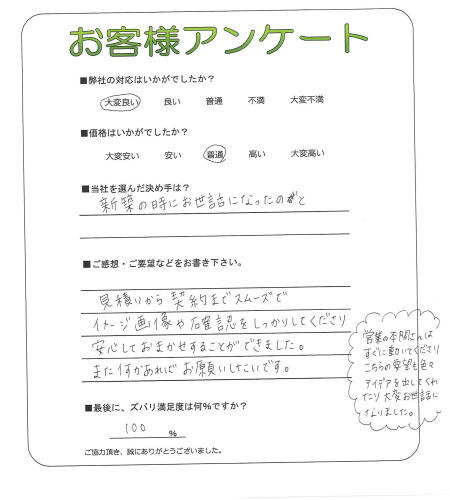 お客様アンケート
■弊社の対応はいかがでしたか？
大変良い 良い 普通 不満 大変不満
■価格はいかがでしたか？
大変安い 安い 普通 高い 大変高い
■当社を選んだ決め手は？
新築の時にお世話になったのがと
■ご感想・ご要望などをお書き下さい。
見積りから契約までスムーズで
イメージ画像や確認をしっかりしてくださり
安心しておまかせすることができました。
また何かあればお願いしたいです。
営業の本間さんは
すぐに動いてくださり
こちらの要望も色々
アイデアを出してくれ
たり大変お世話に
なりました。
■最後に、ズバリ満足度は何%ですか？
100 %
ご協力頂き、誠にありがとうございました。